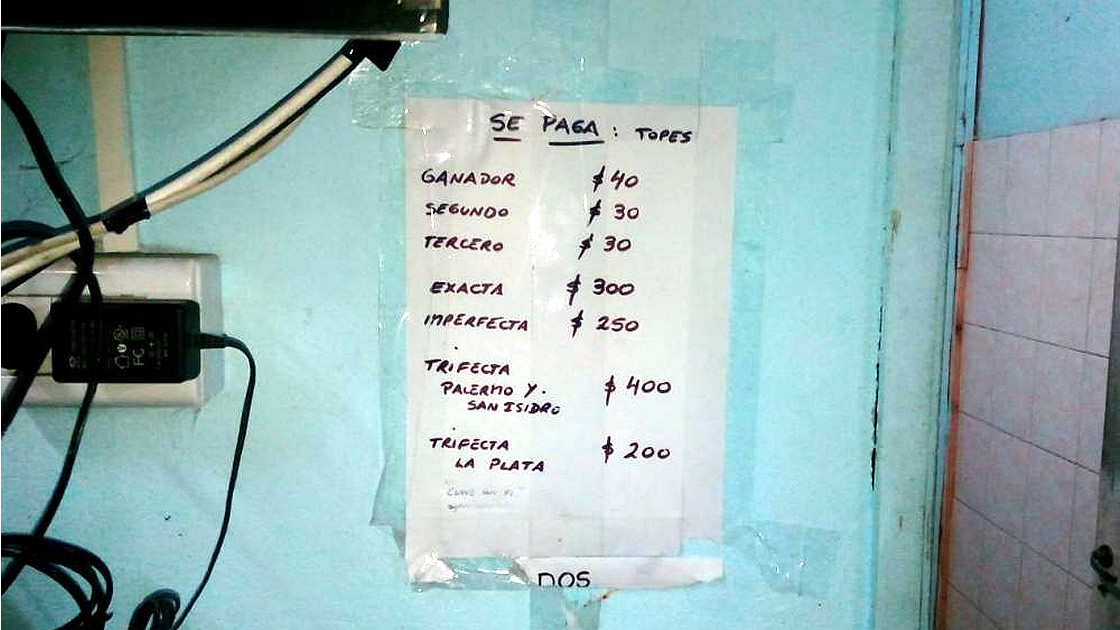 SE PAGA: TOPES
GANADOR $ 40
SEGUNDO $ 30
TERCERO $ 30
EXACTA $ 300
IMPERFECTA $ 250
TRIFECTA
PALERMO Y.
SAN ISIDRO $ 400
TRIFECTA
LA PLATA $ 200
"CLAVE WI FI"
DOS
FC